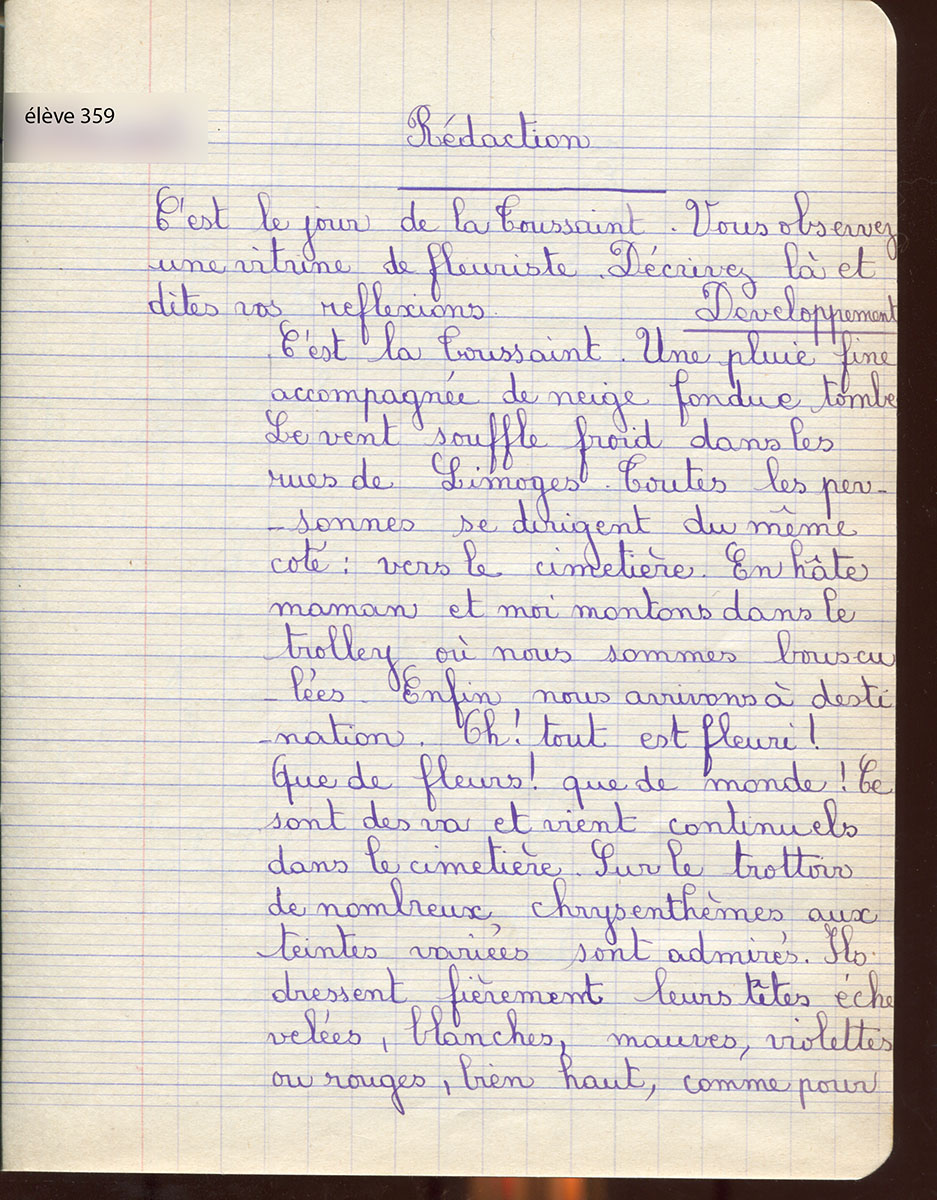 élève 359
Rédaction
C'est le jour de la Toussaint. Vous observez
une vitrine de fleuriste. Décrivez là et
dites vos reflexions. Développement
C'est la Toussaint. Une pluie fine
accompagnée de neige fondue tombe
Le vent souffle froid dans les
rues de Limoges. Toutes les per-
-sonnes se dirigent du même
coté : vers le cimetière. En hâte
maman et moi montons dans le
trolley où nous sommes bouscu
-lées. Enfin nous arrivons à desti
-nation. Oh! tout est fleuri!
Que de fleurs! que de monde! Ce
sont des va et vient continuels
dans le cimetière. Sur le trottoir
de nombreux chrysenthèmes aux
teintes variées sont admirés. Ils
dressent fièrement leurs têtes éche
velées, blanches, mauves, violettes
ou rouges, bien haut, comme pour